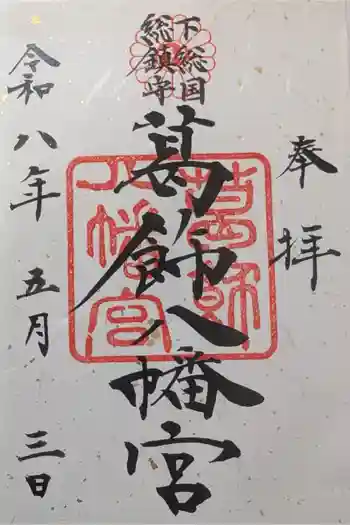 奉拝
下総国
総鎮守
葛飾八幡宮
令和八年五月三日
葛飾
八幡宮